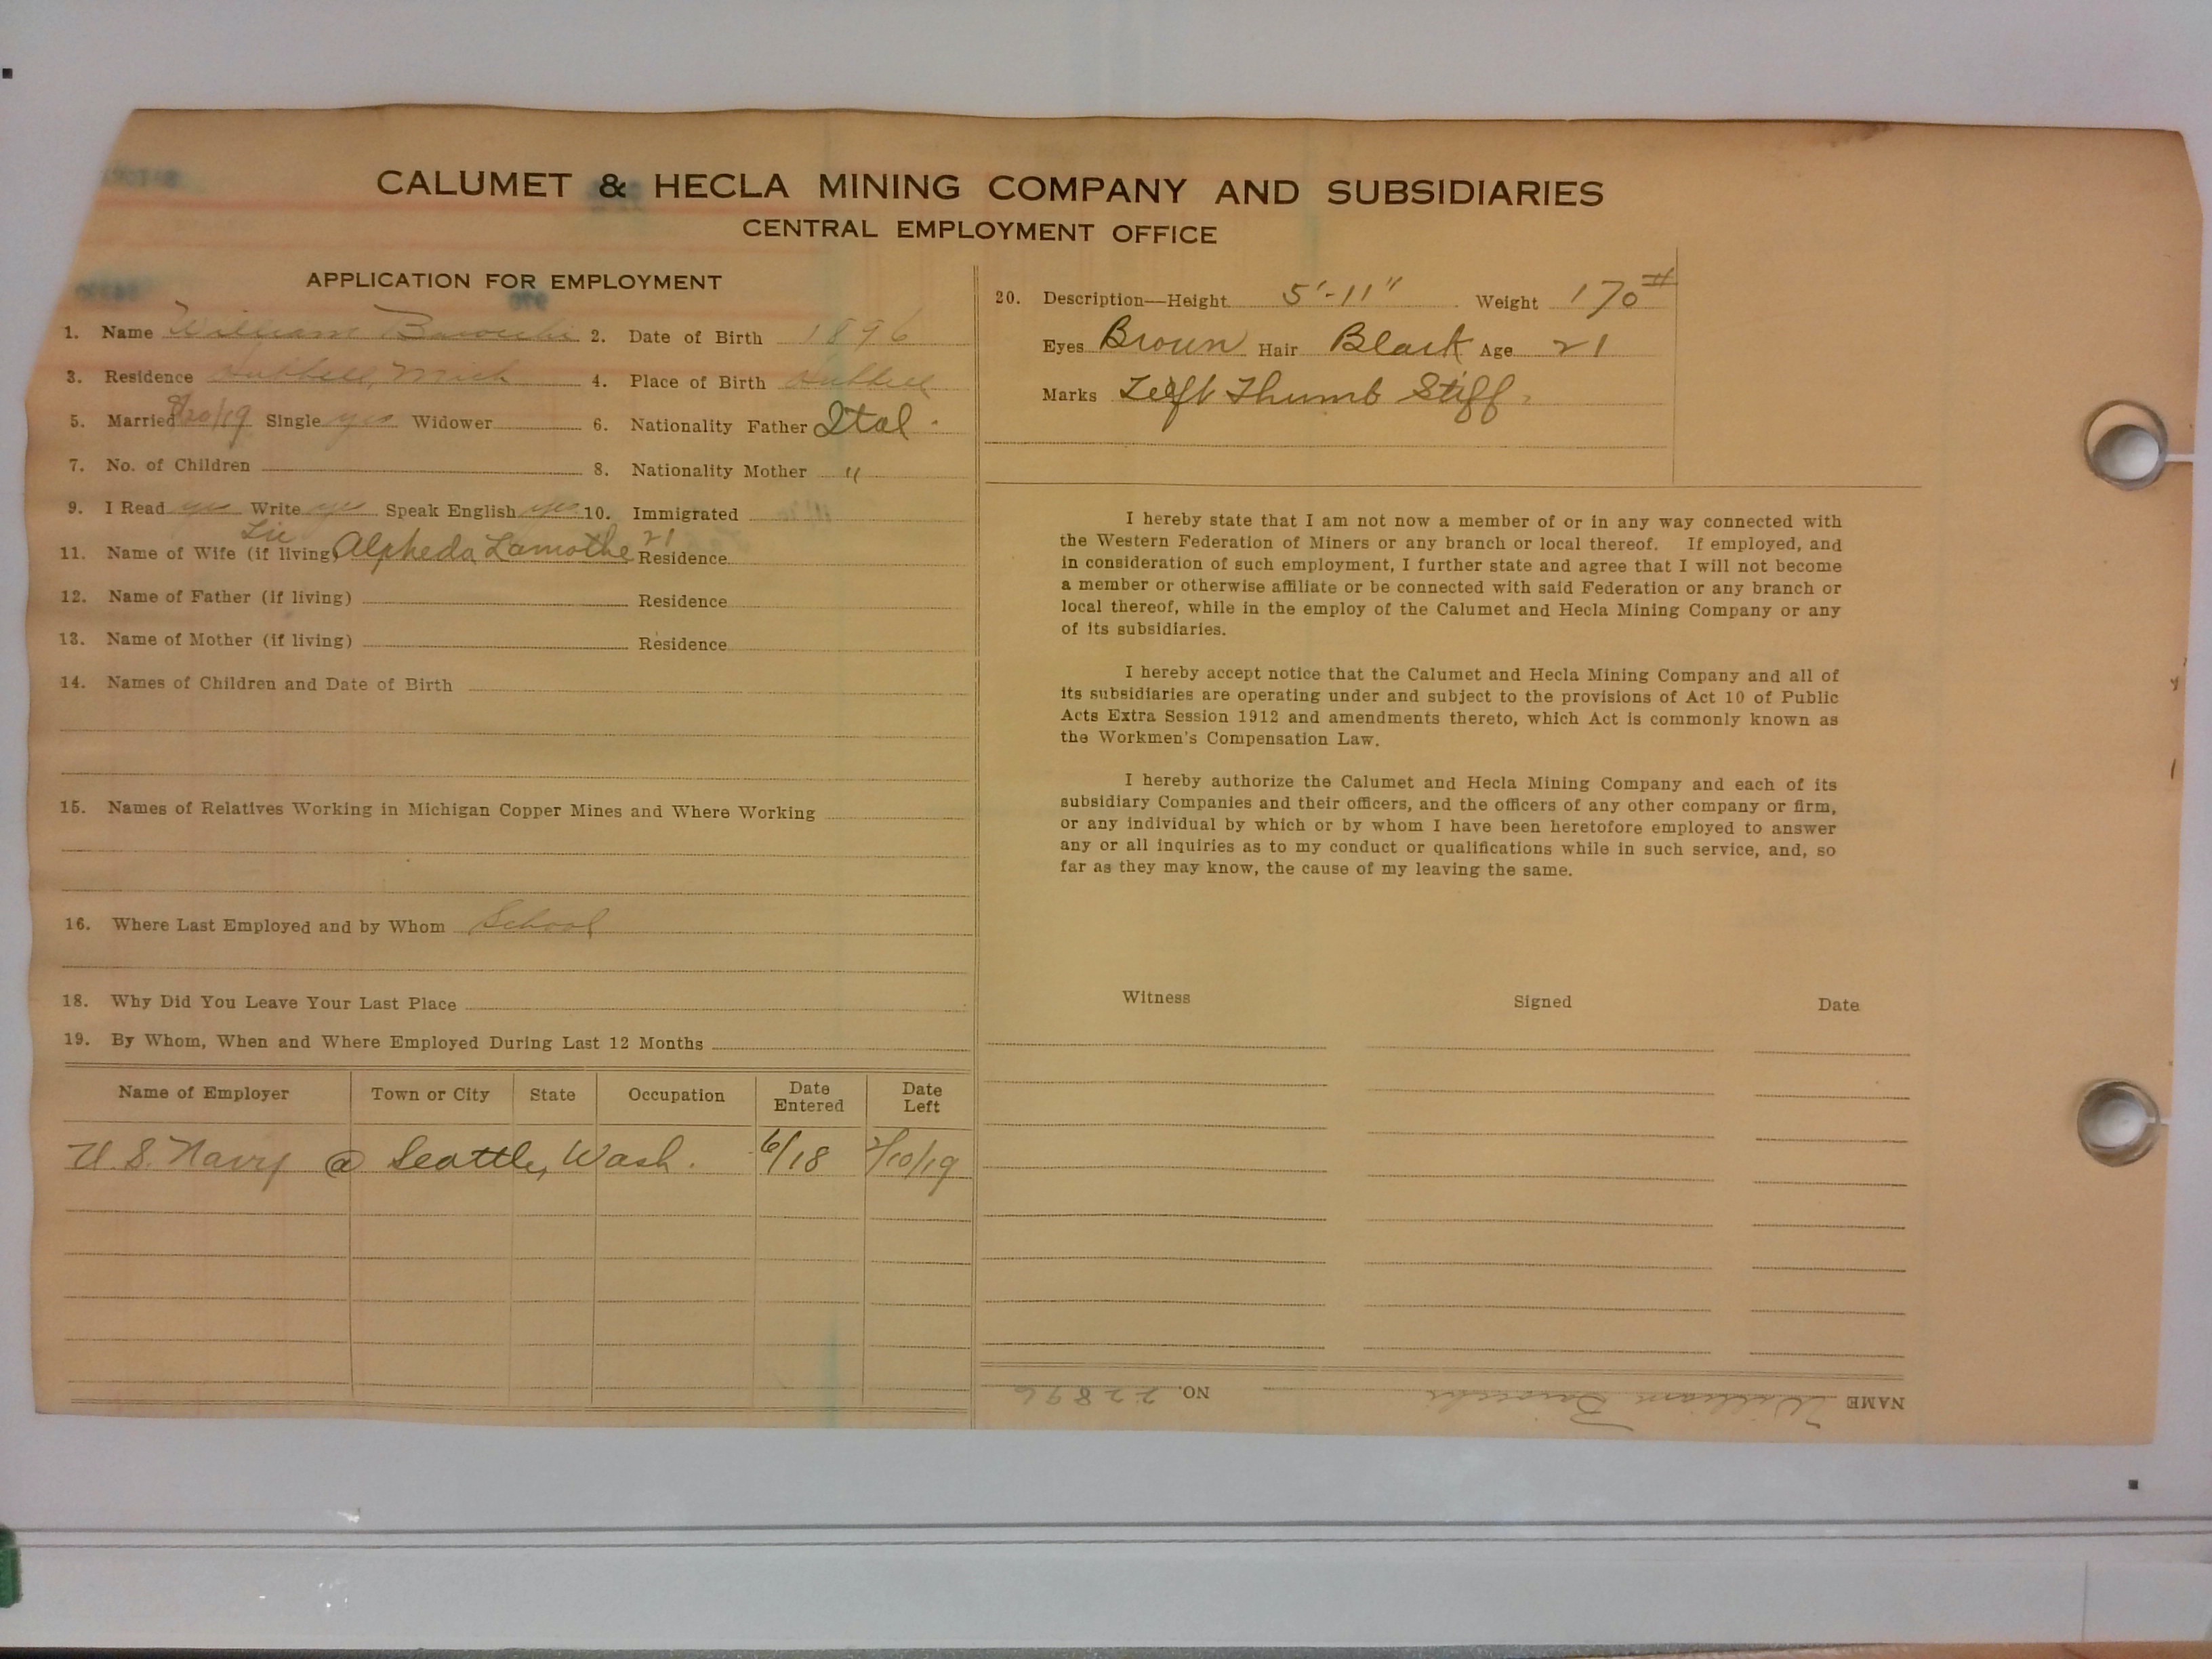 CALUMET & HECLA MINING COMPANY AND SUBSIDIARIES
CENTRAL EMPLOYMENT OFFICE
APPLICATION FOR EMPLOYMENT
1. Name William 2. Date of Birth 1896
3. Residence Hubbell, Mich 4. Place of Birth Hubbell
5. Married 8/20/19 Single yes Widower 6. Nationality Father Ital.
7. No. of Children 8. Nationality Mother "
9. I Read yes Write yes Speak English yes 10. Immigrated
Lic
11. Name of Wife (if living) Alpheda Lamothe 21 Residence
12. Name of Father (if living) Residence
13. Name of Mother (if living) Residence
14. Names of Children and Date of Birth
15. Names of Relatives Working in Michigan Copper Mines and Where Working
16. Where Last Employed and by Whom School
18. Why Did You Leave Your Last Place
19. By Whom, When and Where Employed During Last 12 Months
Name of Employer Town or City State Occupation Date Entered Date Left
U. S. Navy @ Seattle, Wash. 6/18 2/10/19
20. Description—Height 5'-11" Weight 170#
Eyes Brown Hair Black Age 21
Marks Left Thumb Stiff.
I hereby state that I am not now a member of or in any way connected with
the Western Federation of Miners or any branch or local thereof. If employed, and
in consideration of such employment, I further state and agree that I will not become
a member or otherwise affiliate or be connected with said Federation or any branch or
local thereof, while in the employ of the Calumet and Hecla Mining Company or any
of its subsidiaries.
I hereby accept notice that the Calumet and Hecla Mining Company and all of
its subsidiaries are operating under and subject to the provisions of Act 10 of Public
Acts Extra Session 1912 and amendments thereto, which Act is commonly known as
the Workmen's Compensation Law.
I hereby authorize the Calumet and Hecla Mining Company and each of its
subsidiary Companies and their officers, and the officers of any other company or firm,
or any individual by which or by whom I have been heretofore employed to answer
any or all inquiries as to my conduct or qualifications while in such service, and, so
far as they may know, the cause of my leaving the same.
Witness Signed Date
NAME William NO. 22896